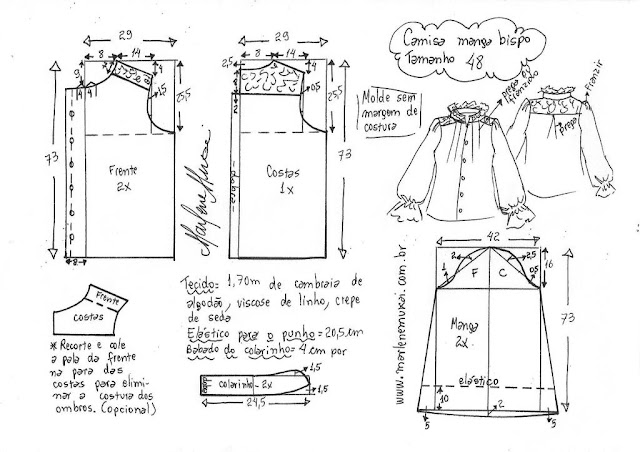 Camisa manga bispo
Tamanho 48
29
8
14
9
4
4
4
1,5
25,5
73
Frente
2x
8
Marlene Mukai
29
2,5
8
14
4
0,5
25,5
dobra
Costas
1x
73
Molde sem
margem de
costura
prega ou
franzido
Franzir
prega
Frente
costas
* Recorte e cole
a pala da frente
na para das
costas para elimi-
nar a costura dos
ombros. (opcional)
Tecido: 1,70m de cambraia de
algodão, viscose de linho, crepe
de seda
Elástico para o punho = 20,5 cm
Babado do colarinho = 4 cm por
dobra
colarinho - 2x
1,5
1,5
24,5
www.marlenemukai.com.br
42
2
2,5
1
F
C
0,5
16
Manga
2x
73
elástico
10
5
2
5